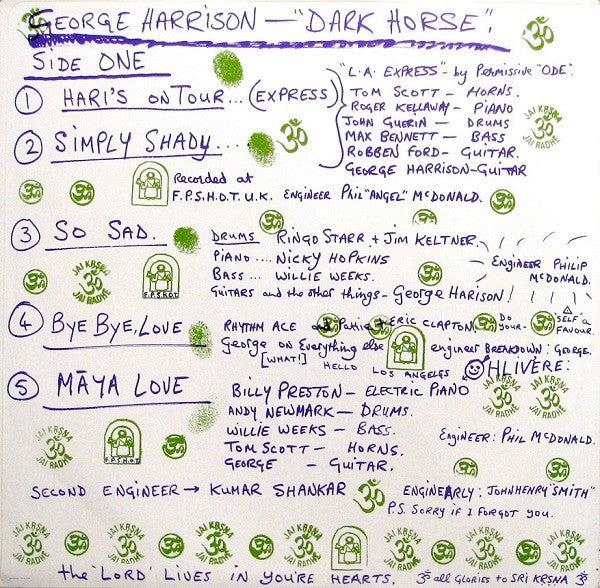 GEORGE HARRISON — "DARK HORSE".
SIDE ONE
① HARI'S ON TOUR... (EXPRESS)
"L.A. EXPRESS" - by Permissive "ODE".
TOM SCOTT - HORNS.
ROGER KELLAWAY - PIANO
JOHN GUERIN - DRUMS
MAX BENNETT - BASS
ROBBEN FORD - GUITAR.
GEORGE HARRISON - GUITAR
② SIMPLY SHADY....
Recorded at
F.P.S.H.O.T. U.K. ENGINEER PHIL "ANGEL" McDONALD.
③ SO SAD.
DRUMS RINGO STARR + JIM KELTNER.
PIANO .... NICKY HOPKINS
BASS ... WILLIE WEEKS.
GUITARS and the other things - GEORGE HARISON!
ENGINEER PHILIP
McDONALD.
F.P.S.H.O.T.
④ BYE BYE, LOVE
RHYTHM ACE and Pattie + ERIC CLAPTON
DO YOUR- SELF a FAVOUR.
George on Everything else
[WHAT!] HELLO LOS ANGELES
engineer BREAKDOWN: GEORGE.
OHLIVERE:
⑤ MĀYA LOVE
BILLY PRESTON - ELECTRIC PIANO
ANDY NEWMARK - DRUMS.
WILLIE WEEKS - BASS.
TOM SCOTT - HORNS.
GEORGE - GUITAR.
ENGINEER: PHIL McDONALD.
SECOND ENGINEER → KUMAR SHANKAR
ENGINEARLY: JOHN HENRY "SMITH"
P.S. SORRY IF I FORGOT YOU.
JAI KRSNA
ॐ
JAI RADHE
F.P.S.H.O.T.
the 'LORD' LIVES IN YOU'RE HEARTS.
ॐ all GLORIES to SRI KRSNA ॐ